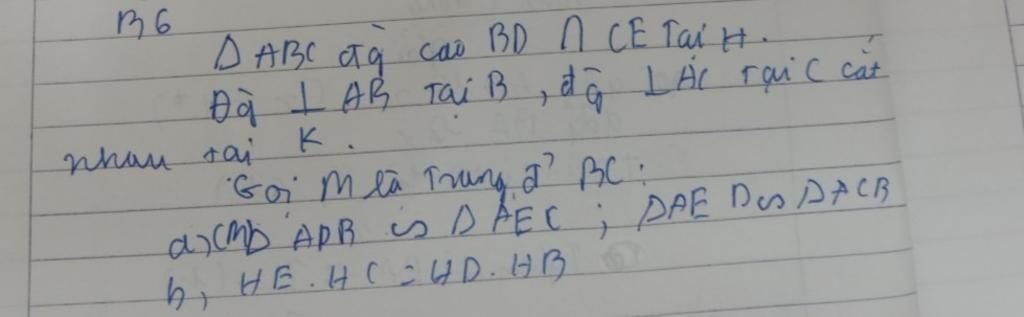 B6
Δ ABC đg cao BD ∩ CE Tại H.
Đg ⊥ AB Tại B, đg ⊥ AC Tại C cắt
nhau tại K.
Gọi M là Trung đ' BC:
a, CM Δ ADB ∽ Δ AEC ; Δ AED ∽ Δ ACB
b, HE. HC = HD. HB